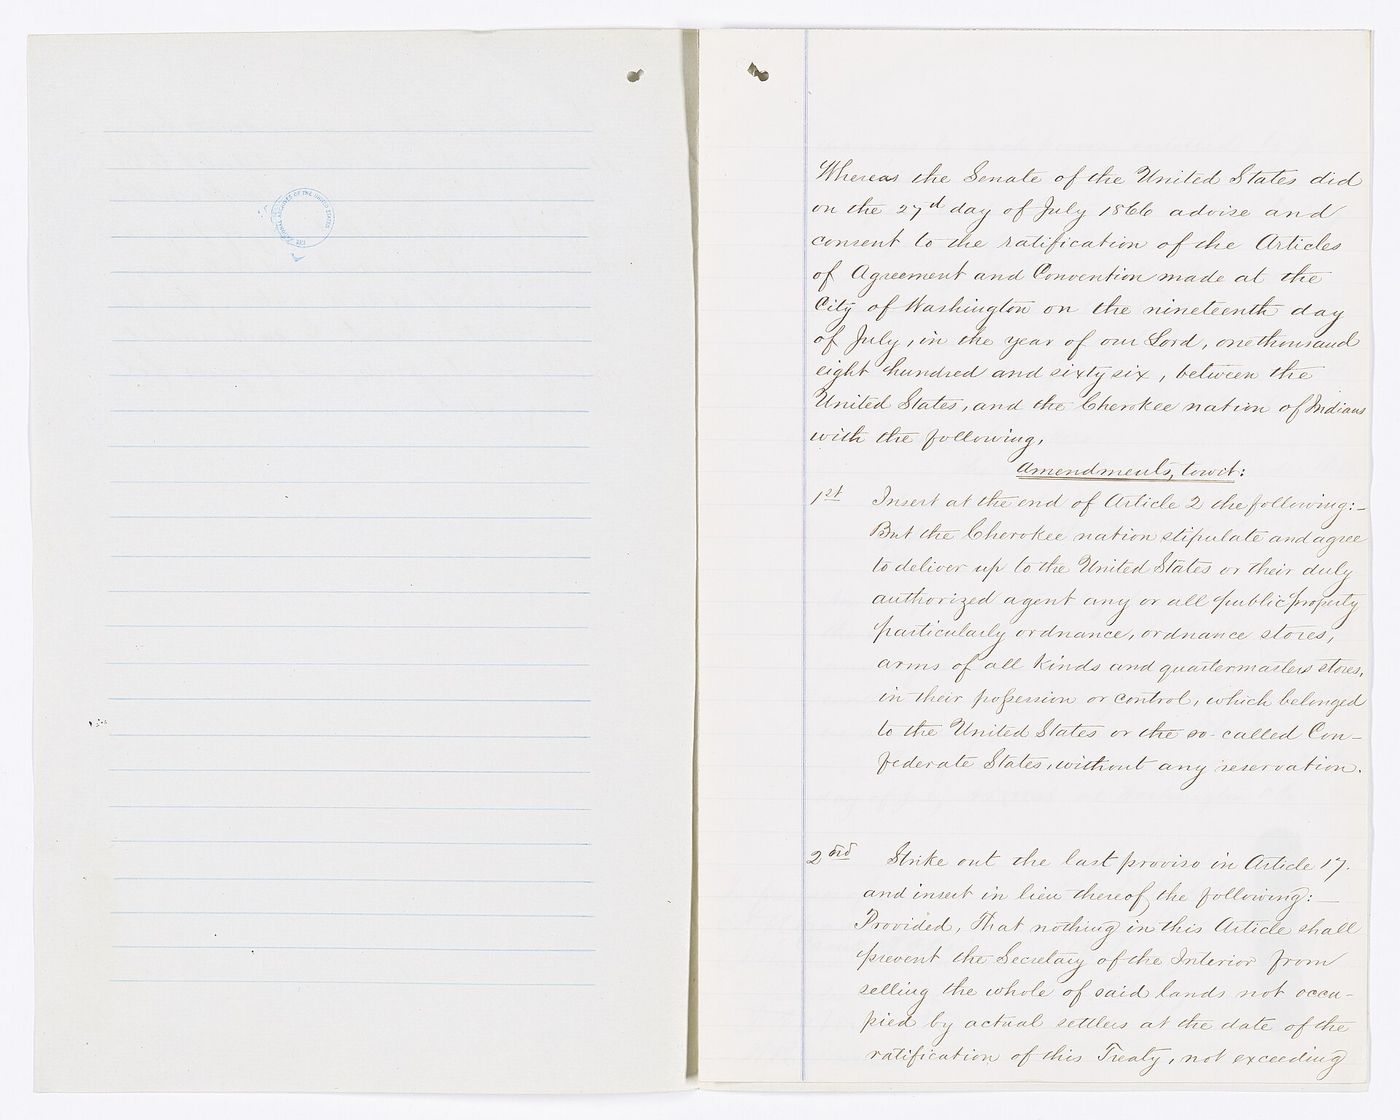 NATIONAL ARCHIVES OF THE UNITED STATES
Whereas the Senate of the United States did
on the 27d day of July 1866 advise and
consent to the ratification of the Articles
of Agreement and Convention made at the
City of Washington on the nineteenth day
of July, in the year of our Lord, one thousand
eight hundred and sixty six, between the
United States, and the Cherokee nation of Indians
with the following,
amendments, towit:
1st Insert at the end of Article 2 the following:-
But the Cherokee nation stipulate and agree
to deliver up to the United States or their duly
authorized agent any or all public property
particularly ordnance, ordnance stores,
arms of all kinds and quartermasters stores,
in their possession or control, which belonged
to the United States or the so-called Con-
federate States, without any reservation.
2nd Strike out the last proviso in Article 17.
and insert in lieu thereof the following:-
Provided, That nothing in this Article shall
prevent the Secretary of the Interior from
selling the whole of said lands not occu-
pied by actual settlers at the date of the
ratification of this Treaty, not exceeding